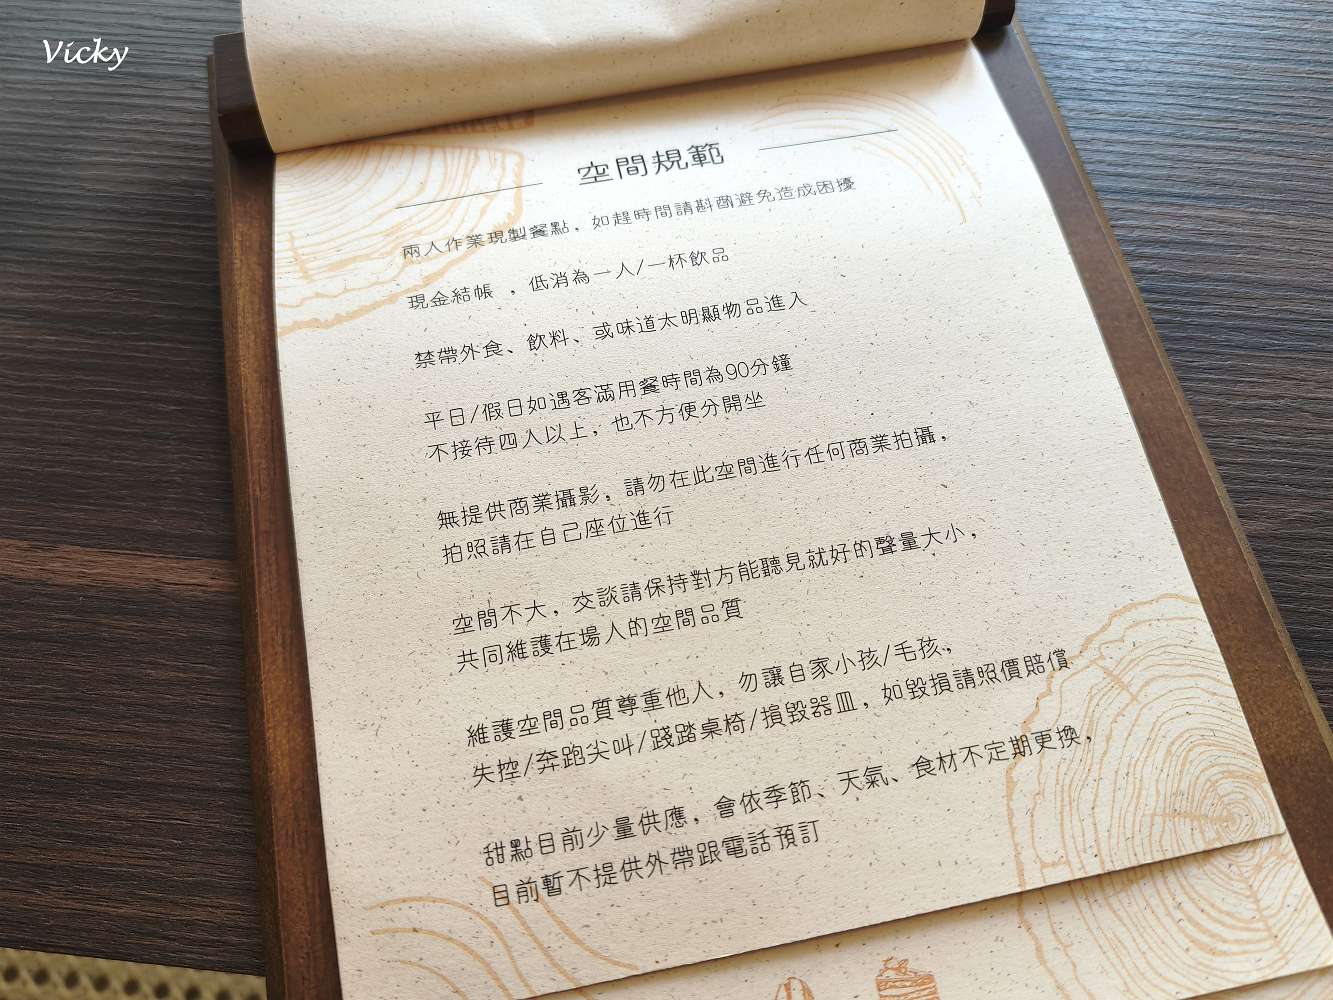 Vicky
空間規範
兩人作業現製餐點，如趕時間請斟酌避免造成困擾
現金結帳 ，低消為一人/一杯飲品
禁帶外食、飲料、或味道太明顯物品進入
平日/假日如遇客滿用餐時間為90分鐘
不接待四人以上，也不方便分開坐
無提供商業攝影，請勿在此空間進行任何商業拍攝，
拍照請在自己座位進行
空間不大，交談請保持對方能聽見就好的聲量大小，
共同維護在場人的空間品質
維護空間品質尊重他人，勿讓自家小孩/毛孩，
失控/奔跑尖叫/踐踏桌椅/損毀器皿，如毀損請照價賠償
甜點目前少量供應，會依季節、天氣、食材不定期更換，
目前暫不提供外帶跟電話預訂